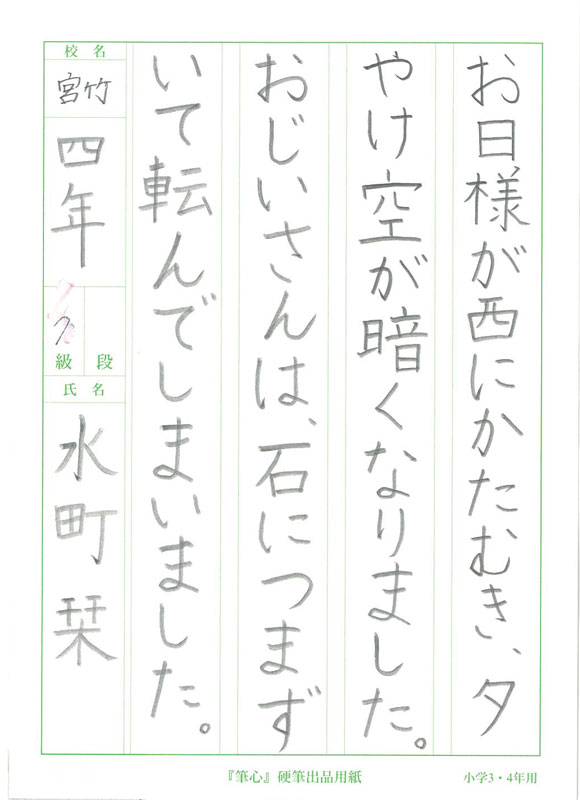 お日様が西にかたむき、夕
やけ空が暗くなりました。
おじいさんは、石につまず
いて転んでしまいました。
校名
宮竹
四年
級 段
7
氏名
水町栞
『筆心』硬筆出品用紙
小学3・4年用